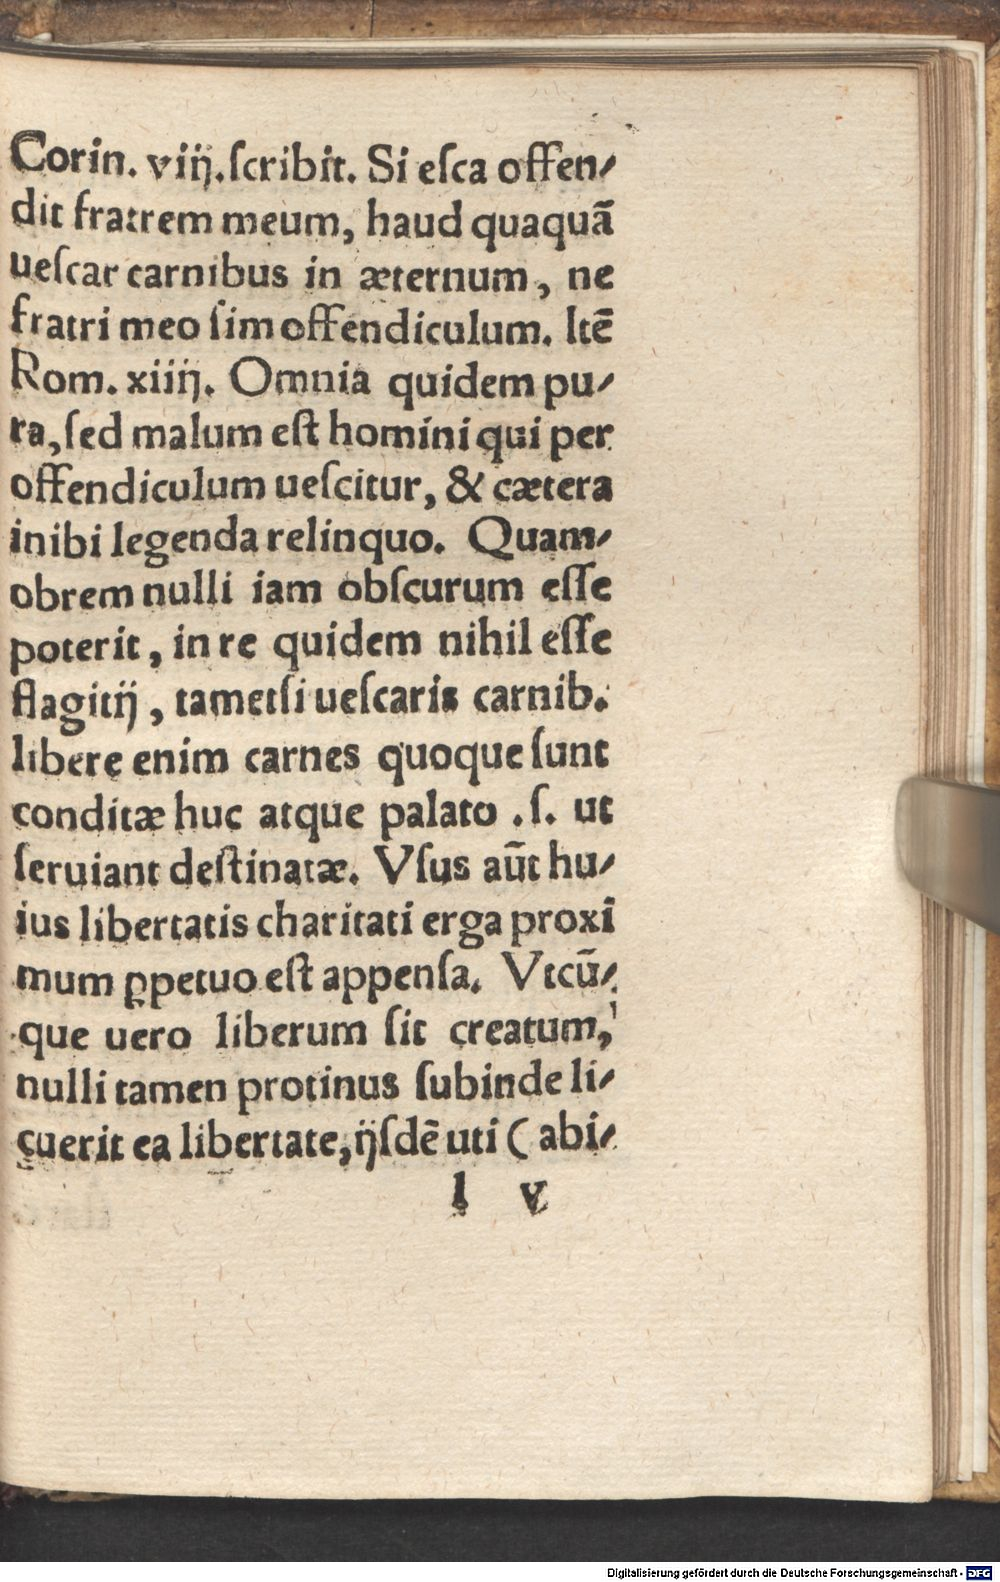 Corin. viij. ſcribit. Si eſca offen⸗
dit fratrem meum, haud quaquã
ueſcar carnibus in æternum, ne
fratri meo ſim offendiculum. Itẽ
Rom. xiiij. Omnia quidem pu⸗
ra, ſed malum eſt homini qui per
offendiculum ueſcitur, & cætera
inibi legenda relinquo. Quam⸗
obrem nulli iam obſcurum eſſe
poterit, in re quidem nihil eſſe
flagitij, tametsi ueſcaris carnib.
libere enim carnes quoque ſunt
conditæ huc atque palato .ſ. ut
ſeruiant deſtinatæ. Vſus aũt hu⸗
ius libertatis charitati erga proxĩ
mum ꝑpetuo eſt appenſa. Vtcũ⸗
que uero liberum ſit creatum,
nulli tamen protinus ſubinde li⸗
cuerit ea libertate, ijſdẽ uti ( abi⸗
l v
Digitalisierung gefördert durch die Deutsche Forschungsgemeinschaft - DFG